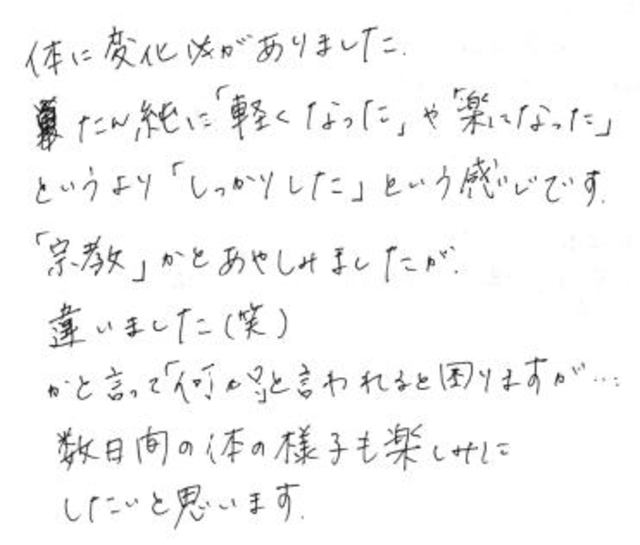 体に変化がありました.
たん純に「軽くなった」や「楽になった」
というより「しっかりした」という感じです.
「宗教」かとあやしみましたが.
違いました(笑)
かと言って「何か?」と言われると困りますが…
数日間の体の様子も楽しみに
したいと思います.